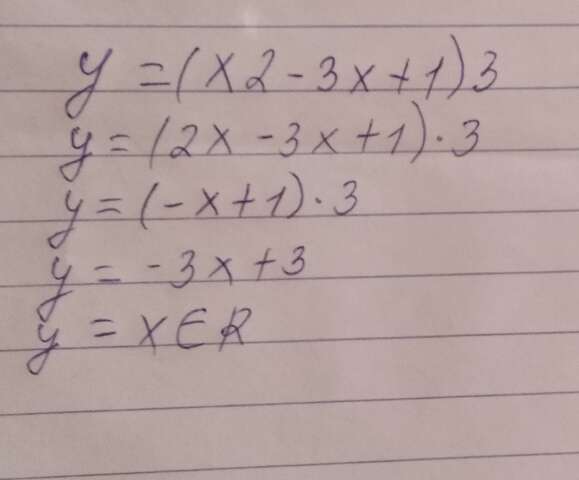 y = (x2 - 3x + 1)3
y = (2x - 3x + 1) · 3
y = (-x + 1) · 3
y = -3x + 3
y = x ∈ R